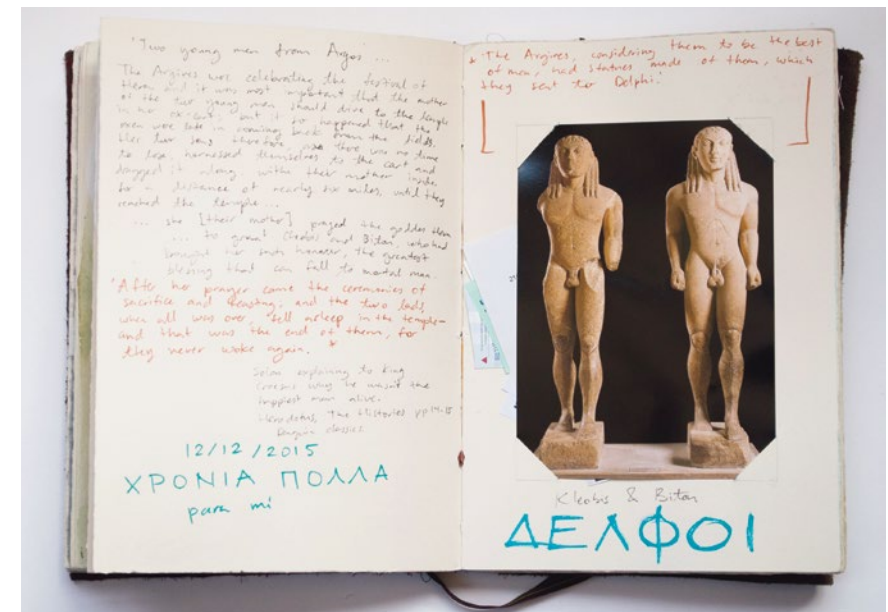 'Two young men from Argos' ...
The Argives were celebrating the festival of
Hera and it was most important that the mother
of the two young men should drive to the temple
in her ox-cart; but it so happened that the
oxen were late in coming back from the fields.
Her two sons therefore, as there was no time
to lose, harnessed themselves to the cart and
dragged it along with their mother inside,
for a distance of nearly six miles, until they
reached the temple ...
... she [their mother] prayed the goddess Hera
... to grant Cleobis and Biton, who had
brought her such honour, the greatest
blessing that can fall to mortal man.
'After her prayer came the ceremonies of
sacrifice and feasting; and the two lads,
when all was over, fell asleep in the temple -
and that was the end of them, for
they never woke again.
Solon explaining to King
Croesus why he wasn't the
happiest man alive.
Herodotus, The Histories pp14-15
Penguin classics.
12/12/2015
ΧΡΟΝΙΑ ΠΟΛΛΑ
para mí
The Argives, considering them to be the best
of men, had statues made of them, which
they sent to Delphi.'
Kleobis & Biton
ΔΕΛΦΟΙ